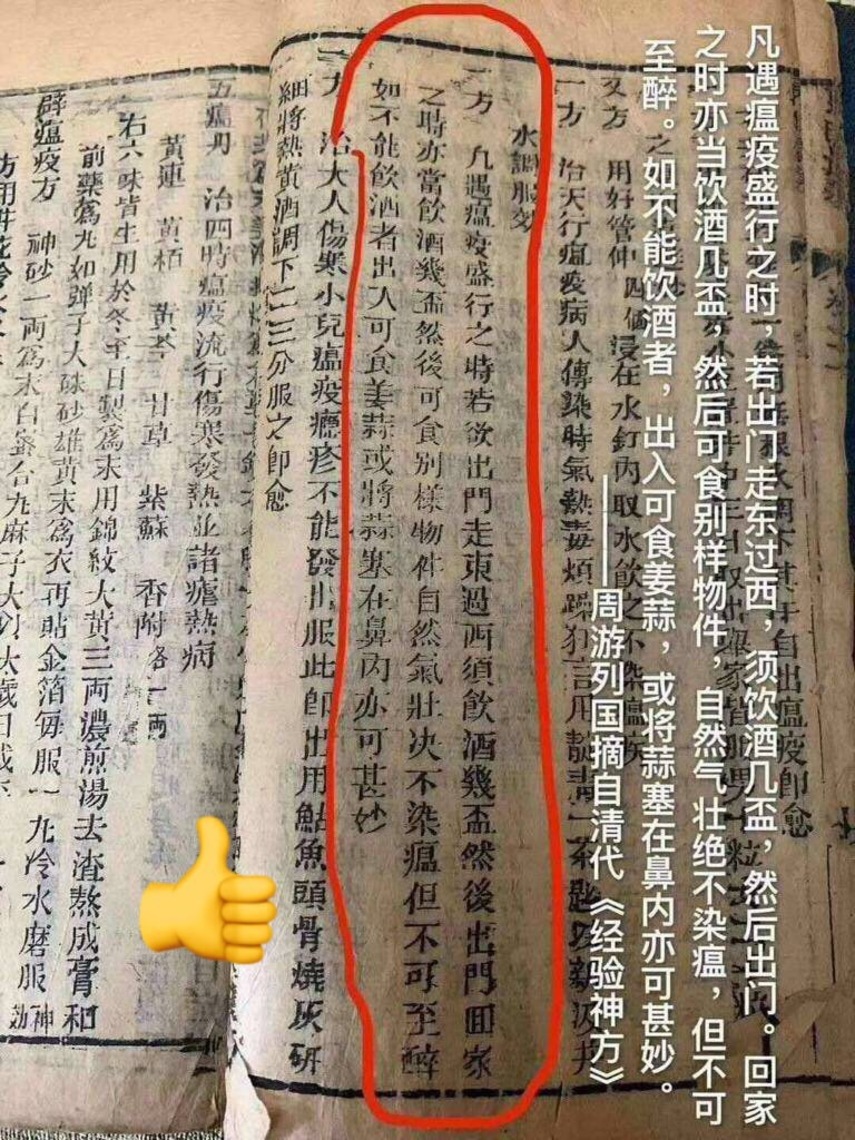 凡遇瘟疫盛行之时，若出门走东过西，须饮酒几盃，然后出门。回家
之时亦当饮酒几盃，然后可食别样物件，自然气壮绝不染瘟，但不可
至醉。如不能饮酒者，出入可食姜蒜，或将蒜塞在鼻内亦可甚妙。
——周游列国摘自清代《经验神方》
自出瘟疫卽愈
又方 用好管仲四個浸在水缸內取水飲之不染瘟疾
一方 治天行瘟疫病人傳染時氣熱毒煩躁狂言用靛青一茶匙新汲井
水調服効
一方 凡遇瘟疫盛行之時若欲出門走東過西須飲酒幾盃然後出門囬家
之時亦當飲酒幾盃然後可食别樣物件自然氣壯決不染瘟但不可至醉
如不能飲酒者出入可食姜蒜或將蒜塞在鼻內亦可甚妙
一方 治大人傷寒小兒瘟疫癮疹不能發出服此卽出用鮎魚頭骨燒灰研
細將熱黃酒調下二三分服之卽愈
五瘟丹 治四時瘟疫流行傷寒發熱並諸瘧熱病
黃連 黃栢 黃芩 甘草 紫蘇 香附各一兩
右六味皆生用於冬至日製爲末用錦紋大黃三兩濃煎湯去渣熬成膏和
前藥爲丸如彈子大硃砂雄黃末爲衣再貼金箔每服一丸冷水磨服神効
辟瘟疫方 神砂一兩爲末白蜜合丸麻子大以太歲日或